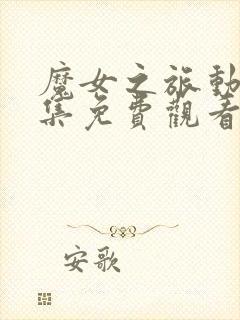 魔女之旅動
集免費觀看
安歌